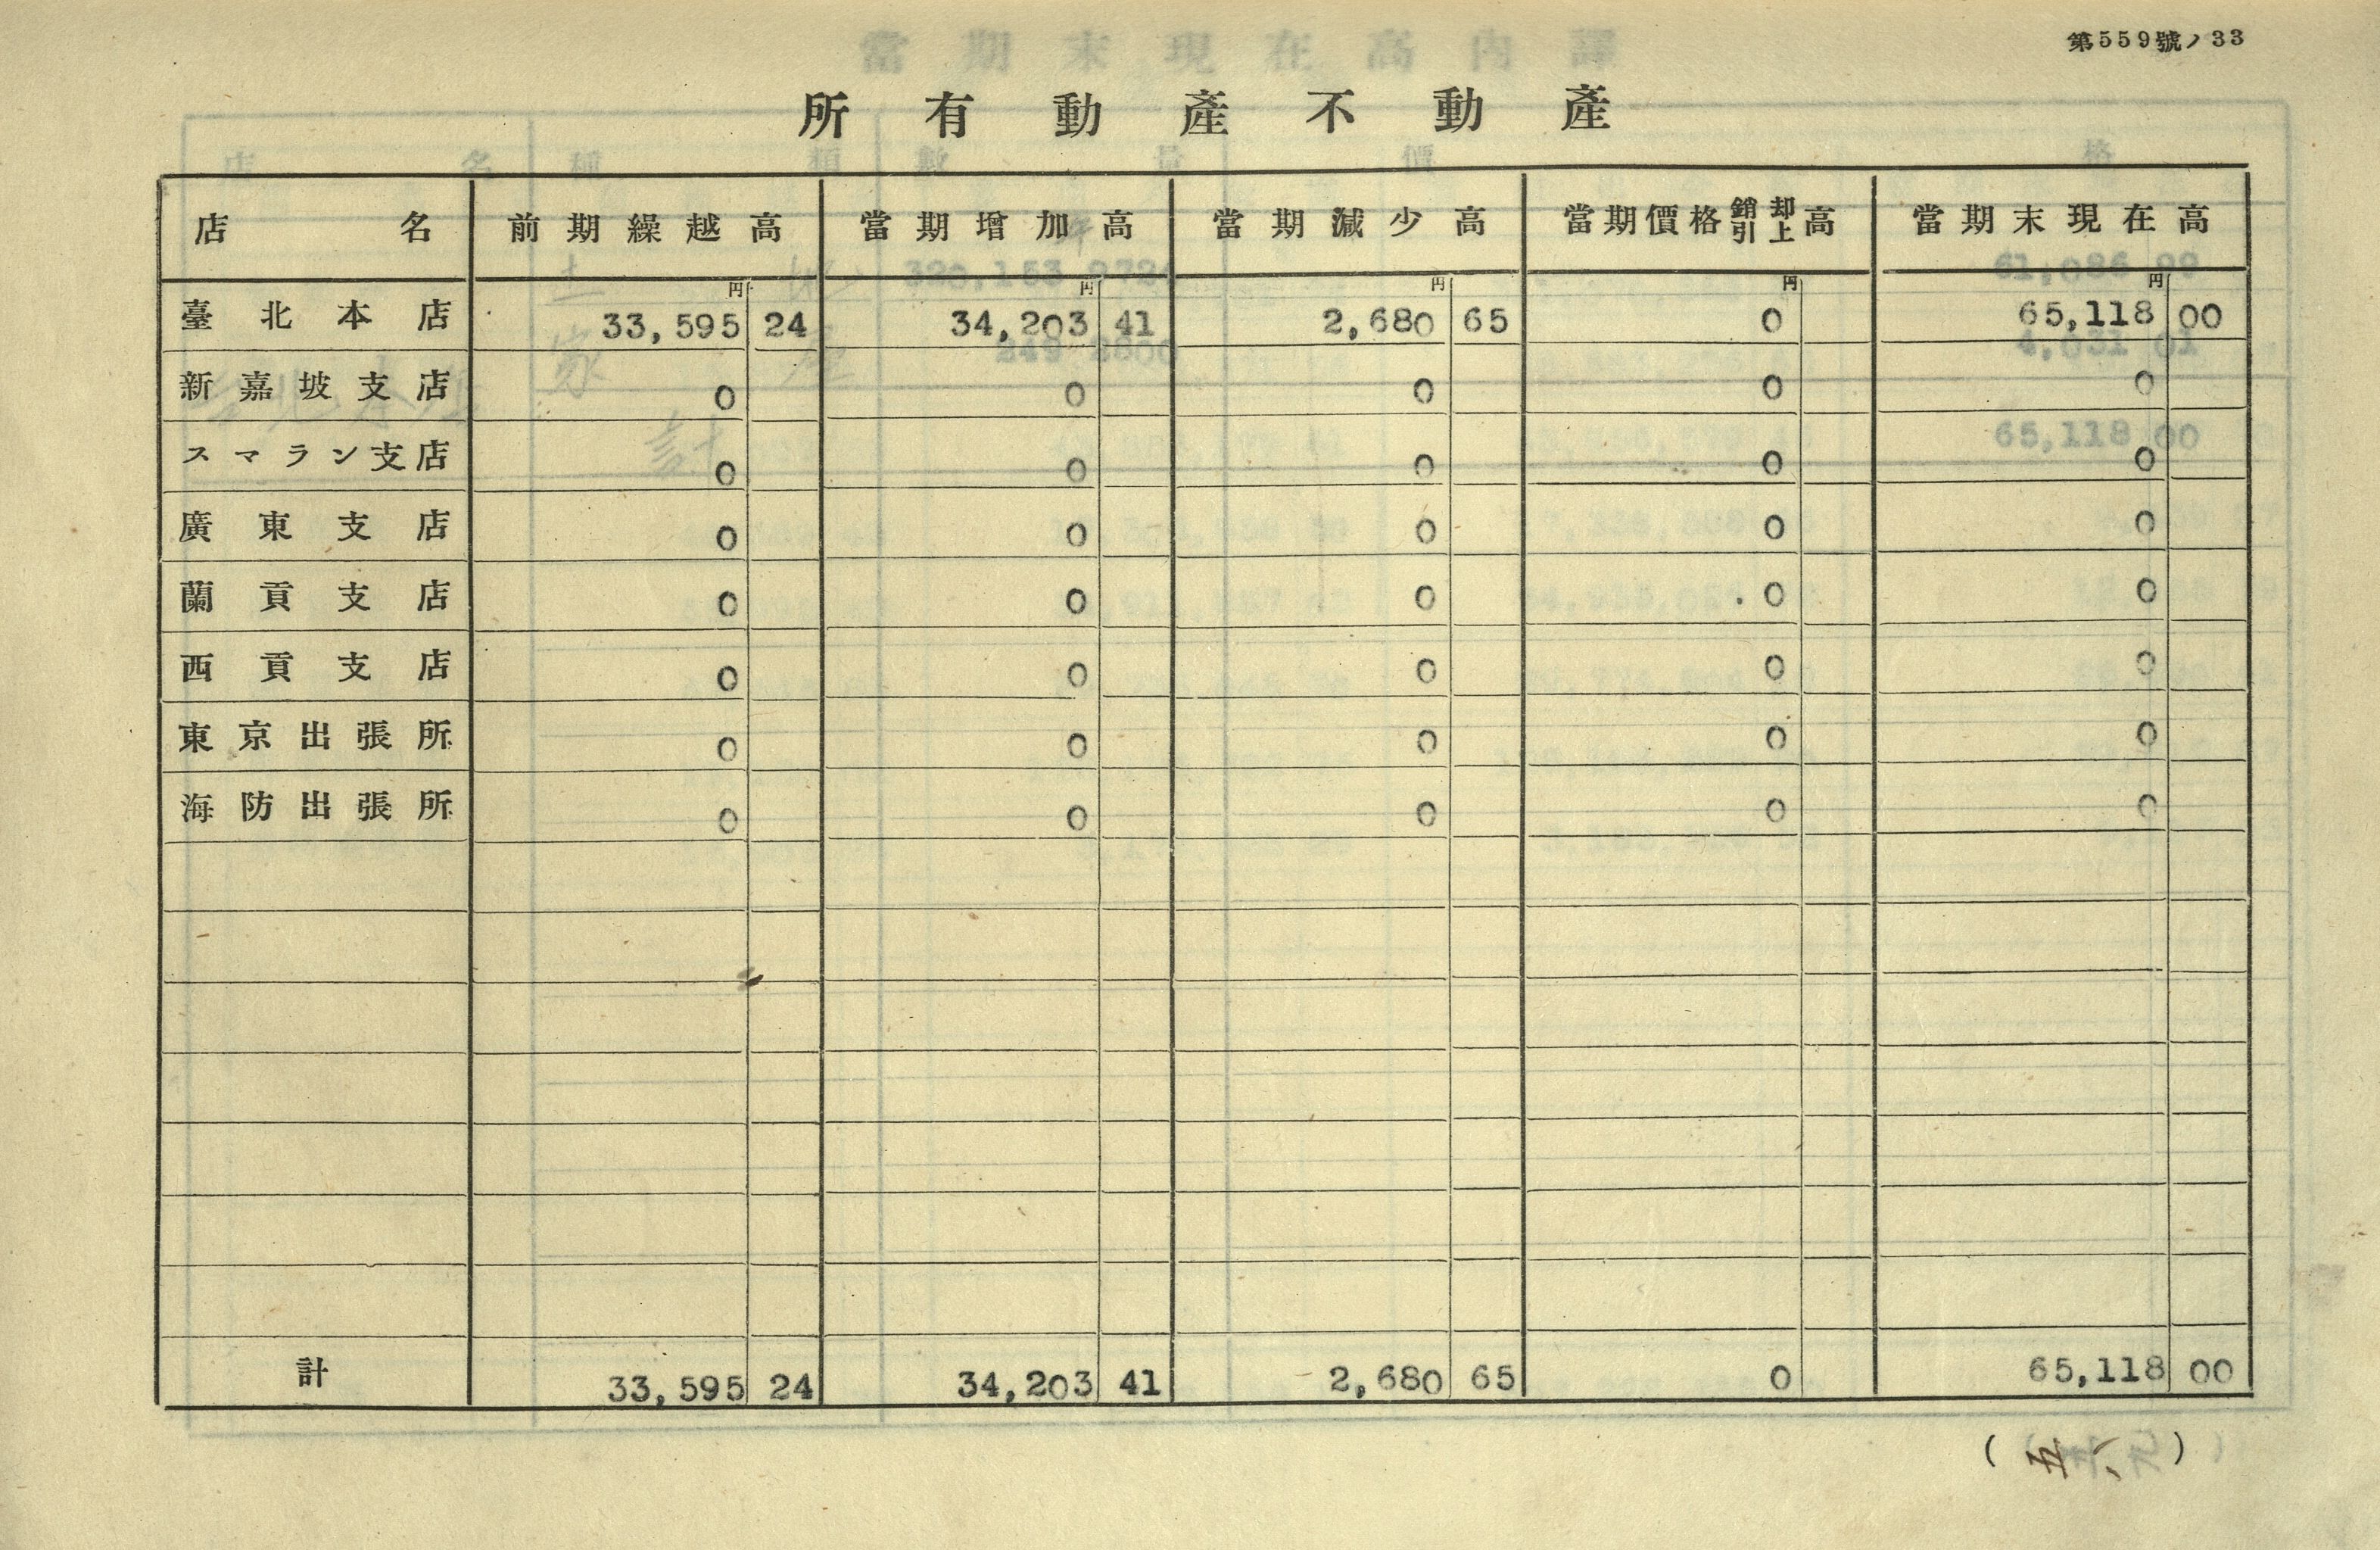 第559號ノ33
所有動產不動產
店名 前期繰越高 當期增加高 當期減少高 當期價格銷却引上高 當期末現在高
円 円 円 円 円
臺北本店 33,595 24 34,203 41 2,680 65 0 65,118 00
新嘉坡支店 0 0 0 0 0
スマラン支店 0 0 0 0 0
廣東支店 0 0 0 0 0
蘭貢支店 0 0 0 0 0
西貢支店 0 0 0 0 0
東京出張所 0 0 0 0 0
海防出張所 0 0 0 0 0
計 33,595 24 34,203 41 2,680 65 0 65,118 00